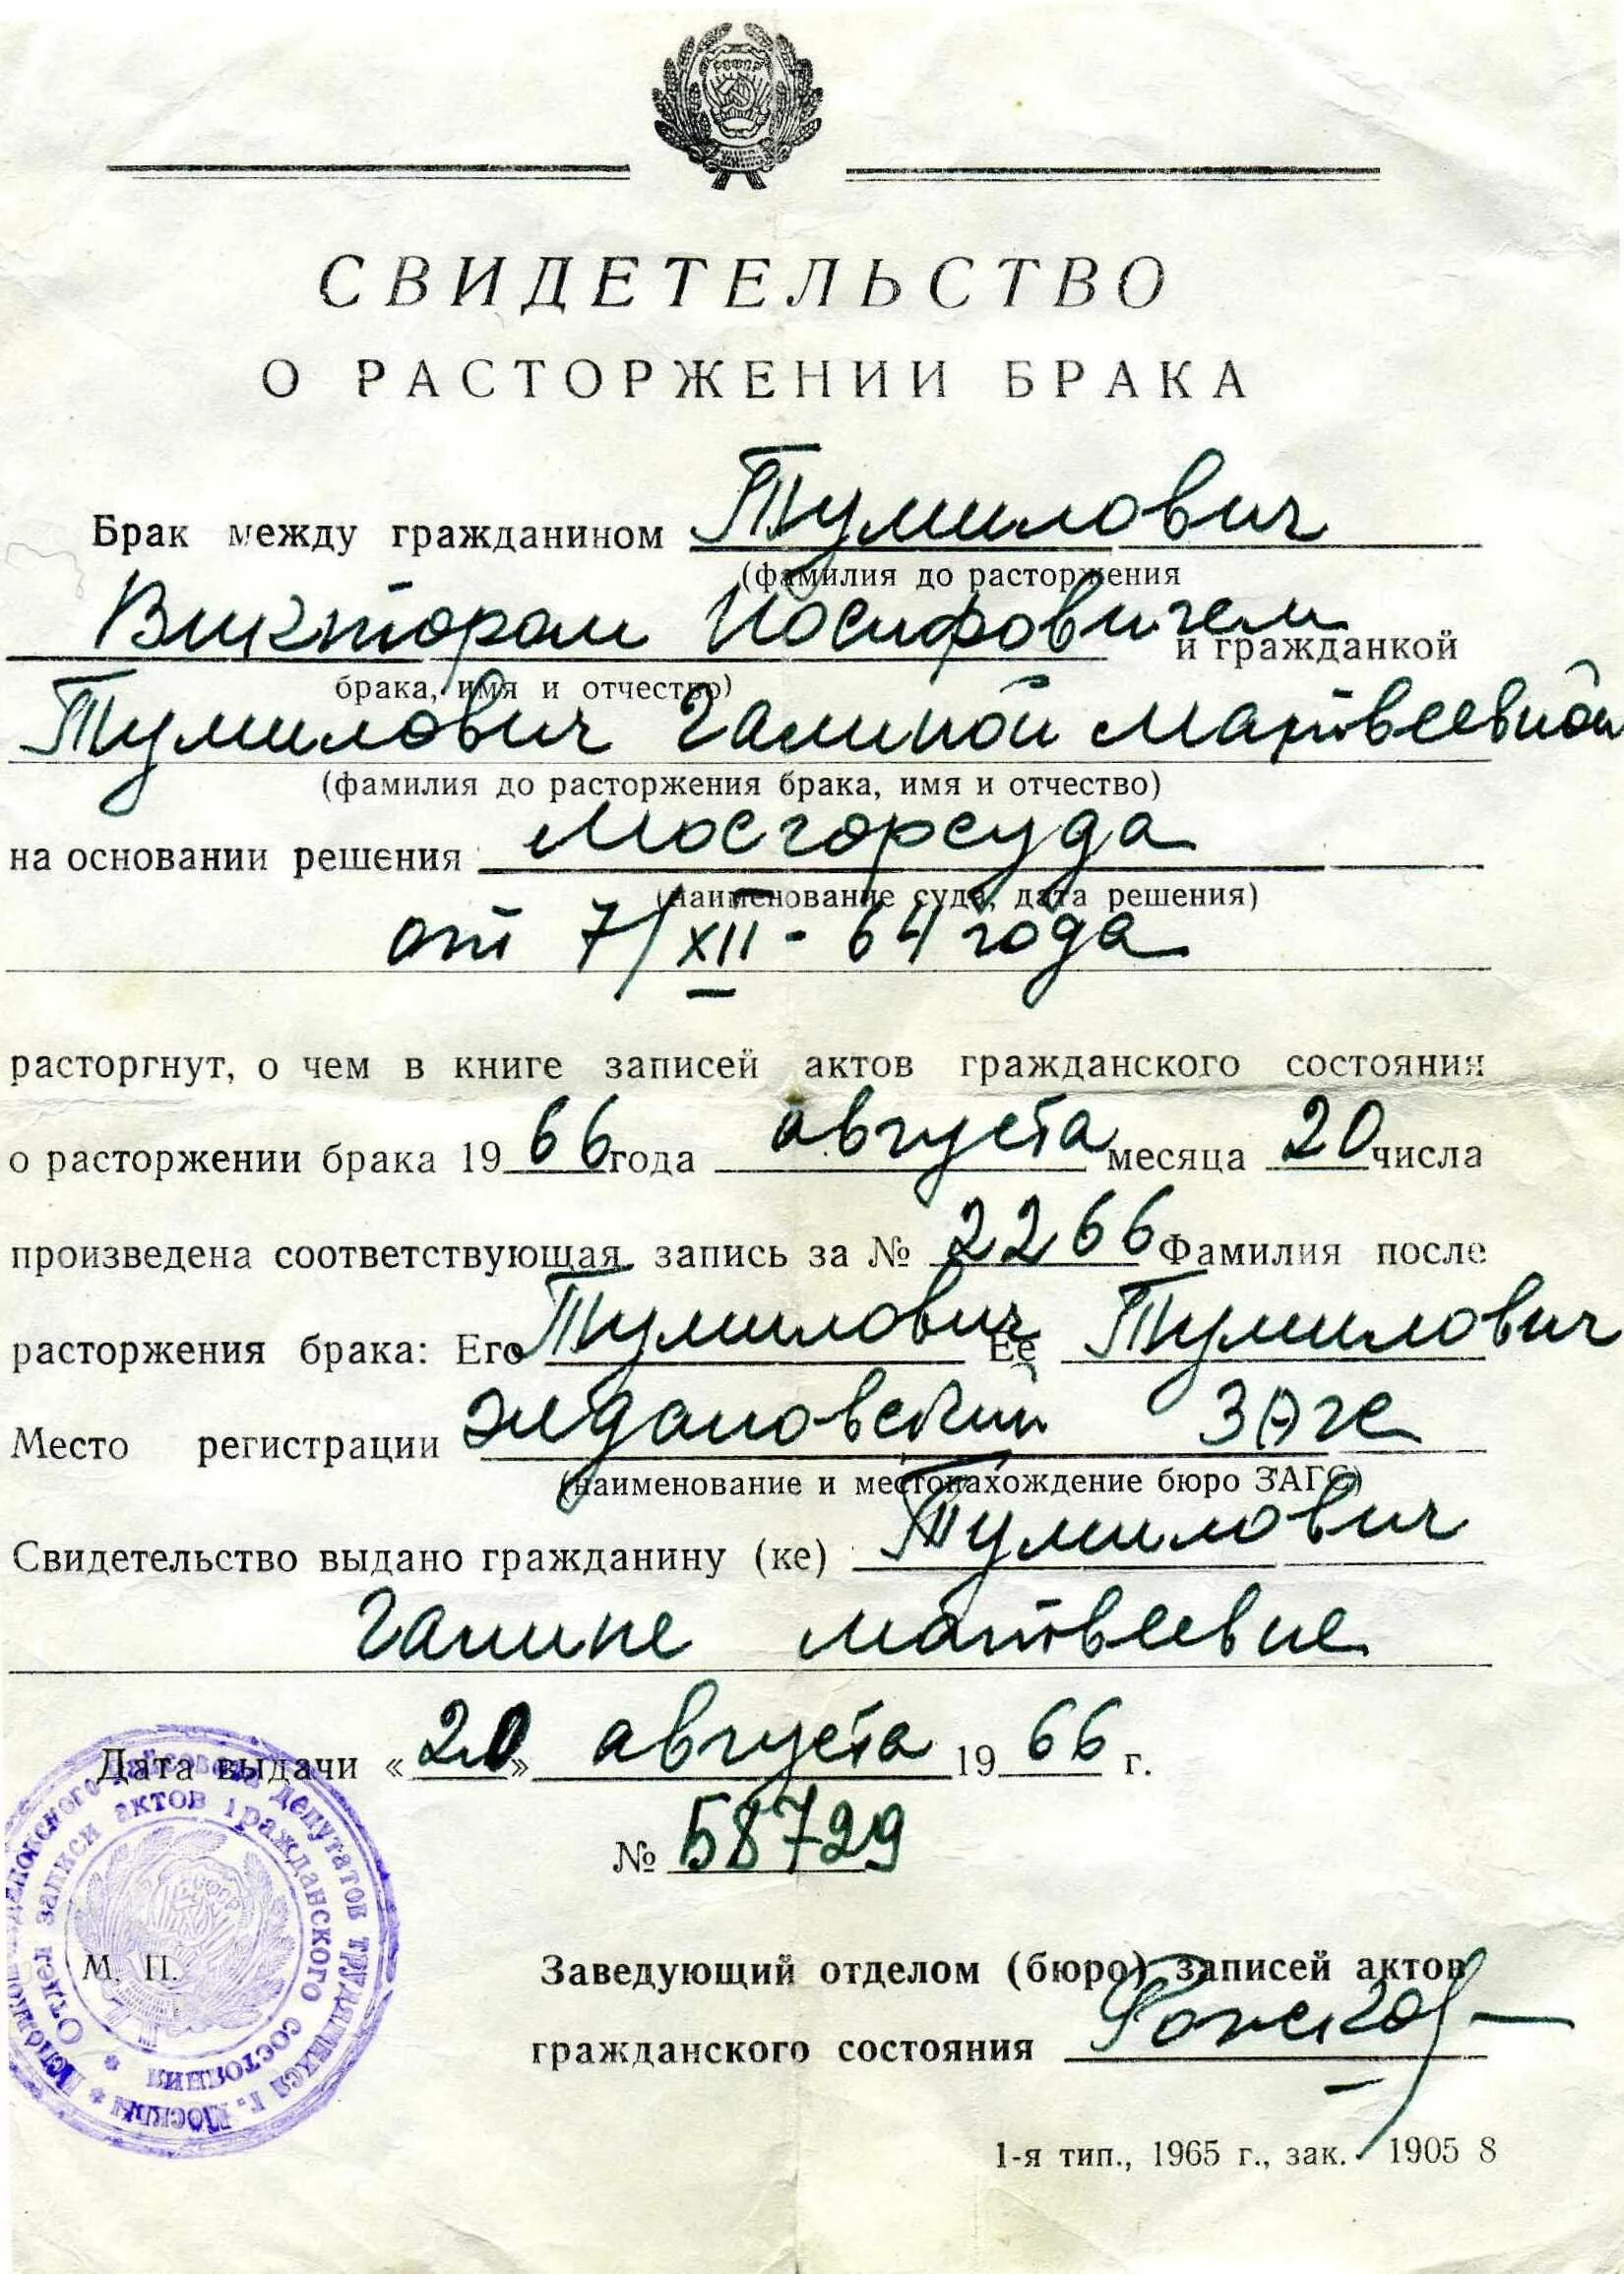 СВИДЕТЕЛЬСТВО
О РАСТОРЖЕНИИ БРАКА
Брак между гражданином Тумилович
(фамилия до расторжения
Виктором Иосифовичем и гражданкой
брака, имя и отчество)
Тумилович Галиной Матвеевной
(фамилия до расторжения брака, имя и отчество)
на основании решения Мосгорсуда
(наименование суда, дата решения)
от 7/XII - 64 года
расторгнут, о чем в книге записей актов гражданского состояния
о расторжении брака 1966 года августа месяца 20 числа
произведена соответствующая запись за № 2266 Фамилия после
расторжения брака: Его Тумилович Ее Тумилович
Место регистрации Ждановский ЗАГС
(наименование и местонахождение бюро ЗАГС)
Свидетельство выдано гражданину (ке) Тумилович
Галине Матвеевне
Дата выдачи «20» августа 1966 г.
№ 58729
депутатов трудящихся г. Москвы
Отдел записи актов гражданского состояния
РСФСР
М. П.
Заведующий отделом (бюро) записей актов
гражданского состояния
1-я тип., 1965 г., зак. 1905 8